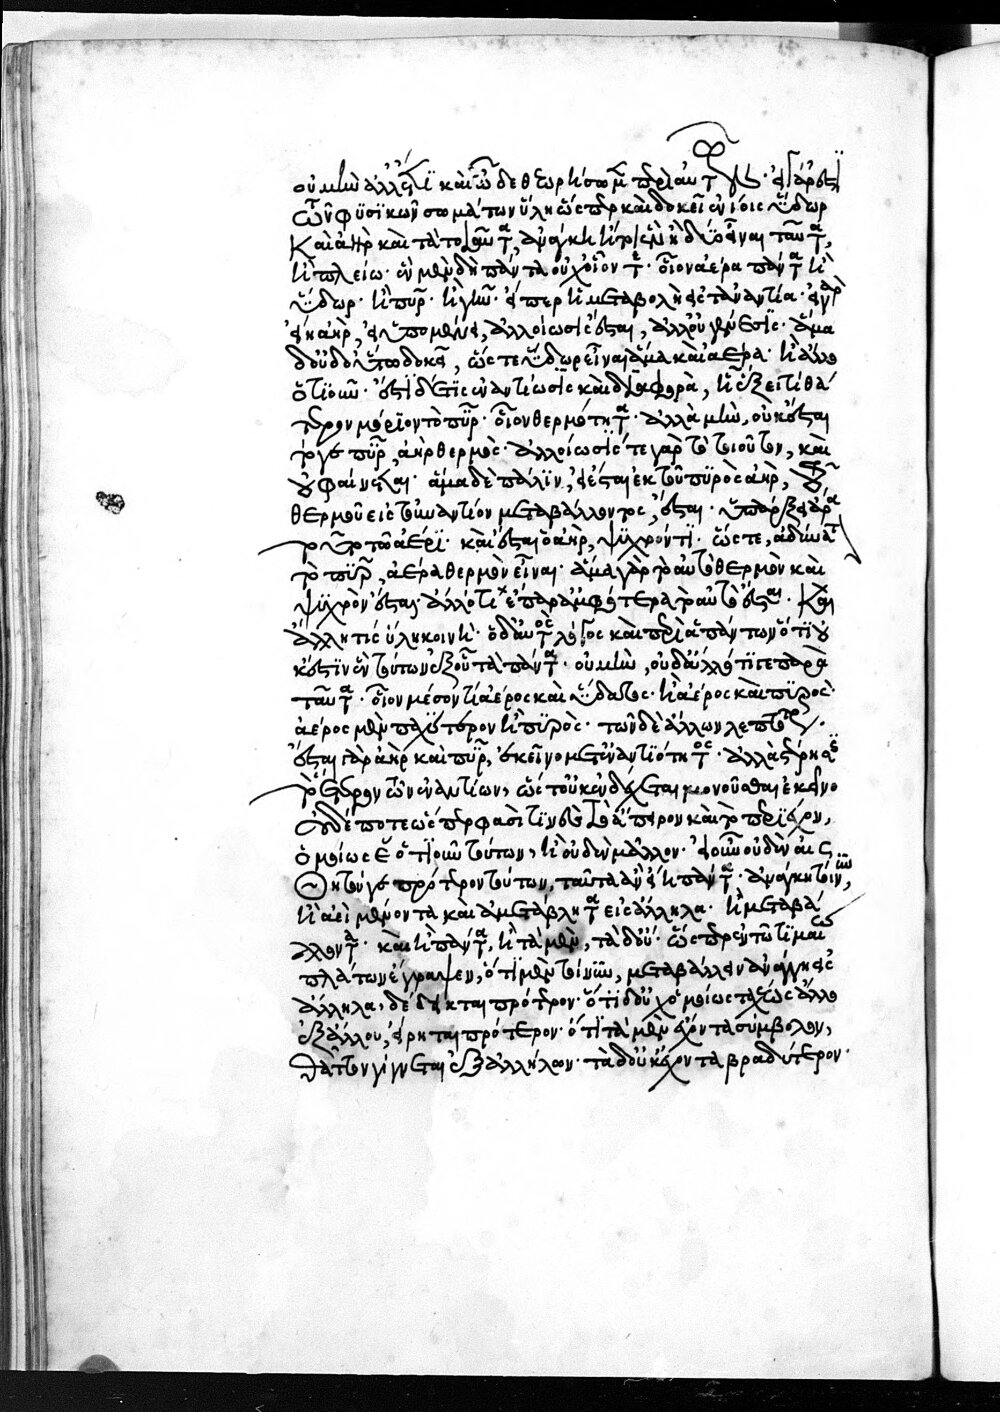 οὐ μὴν ἀλλ' ἔτι καὶ ὧδε θεωρήσωμεν περὶ αὐτῶν. εἰ γάρ ἐστι
τῶν φυσικῶν σωμάτων ὕλη ὥσπερ καὶ δοκεῖ ἐνίοις ὕδωρ
καὶ ἀὴρ καὶ τὰ τοιαῦτα, ἀνάγκη ἤτοι ἓν ἢ δύο εἶναι ταῦτα,
ἢ πλείω. ἓν μὲν δὴ πάντα οὐχ οἷόν τε. οἷον ἀέρα πάντα ἢ
ὕδωρ. ἢ πῦρ. ἢ γῆν. εἴπερ ἡ μεταβολὴ εἰς τἀναντία. εἰ γὰρ
εἴη ἀήρ, εἰ ὑπομένει, ἀλλοίωσις ἔσται, ἀλλ' οὐ γένεσις. ἅμα
δ' οὐδ' οὕτω δοκεῖ, ὥστε ὕδωρ εἶναι ἅμα καὶ ἀέρα. ἢ ἄλλο
ὁτιοῦν. ἔσται δή τις ἐναντίωσις καὶ διαφορὰ, ἧς ἕξει τι θά
τερον μόριον τὸ πῦρ. οἷον θερμότητα. ἀλλὰ μὴν, οὐκ ἔσται
τό γε πῦρ, ἀὴρ θερμός. ἀλλοίωσίς τε γὰρ τὸ τοιοῦτον, καὶ
οὐ φαίνεται. ἅμα δὲ πάλιν, εἰ ἔσται ἐκ τοῦ πυρὸς ἀὴρ, τοῦ
θερμοῦ εἰς τοὐναντίον μεταβάλλοντος, ἔσται. ὑπάρξει ἄρα
τοῦτο τῷ ἀέρι. καὶ ἔσται ὁ ἀὴρ, ψυχρόν τι. ὥστε, ἀδύνατον
τὸ πῦρ, ἀέρα θερμὸν εἶναι. ἅμα γὰρ τὸ αὐτὸ θερμὸν καὶ
ψυχρὸν ἔσται. ἄλλο τι ἄρα παρ' ἀμφότερα τὸ αὐτὸ ἔσται. καὶ
ἄλλη τις ὕλη κοινή. ὁ δ' αὐτὸς λόγος καὶ περὶ ἁπάντων ὅτι οὐ
κ ἔστιν ἓν τούτων ἐξ οὗ τὰ πάντα. οὐ μὴν, οὐδ' ἄλλό τι γε παρὰ
ταῦτα. οἷον μέσόν τι ἀέρος καὶ ὕδατος. ἢ ἀέρος καὶ πυρὸς.
ἀέρος μὲν παχύτερον ἢ πυρὸς. τῶν δὲ ἄλλων λεπτότερον.
ἔσται γὰρ ἀὴρ καὶ πῦρ, ἐκεῖνο μετ' ἐναντιότητος. ἀλλὰ στέρησις
τὸ ἕτερον τῶν ἐναντίων, ὥστ' οὐκ ἐνδέχεται μονοῦσθαι ἐκεῖνο
οὐδέποτε ὥσπερ φασί τινες τὸ ἄπειρον καὶ τὸ περιέχον,
ὁμοίως ἄρα ὁτιοῦν τούτων, ἢ οὐδέν μᾶλλον. εἰ οὖν οὐδὲν αἰσ
θητόν γε πρότερον τούτων, ταῦτα ἂν εἴη πάντα. ἀνάγκη τοίνυν,
ἢ ἀεὶ μένοντα καὶ ἀμετάβλητα εἰς ἄλληλα. ἢ μεταβά
λλοντα. καὶ ἢ πάντα, ἢ τὰ μὲν, τὰ δ' οὔ. ὥσπερ ἐν τῷ τιμαίῳ
πλάτων ἔγραψεν, ὅτι μὲν τοίνυν, μεταβάλλειν ἀνάγκη εἰς
ἄλληλα, δέδεικται πρότερον. ὅτι δ' οὐχ ὁμοίως ταχέως ἄλλο
ἐξ ἄλλου, εἴρηται πρότερον. ὅτι τὰ μὲν ἔχοντα σύμβολον,
θᾶττον γίγνεται ἐξ ἀλλήλων. τὰ δ' οὐκ ἔχοντα βραδύτερον.